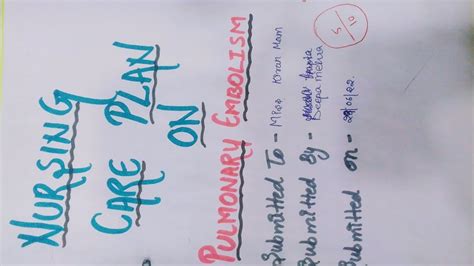 NURSING
CARE PLAN
ON
PULMONARY EMBOLISM
Submitted To - Miss Kiran Mam
Submitted By -
Deepa Mehra
Submitted on - 28/06/22
5/10